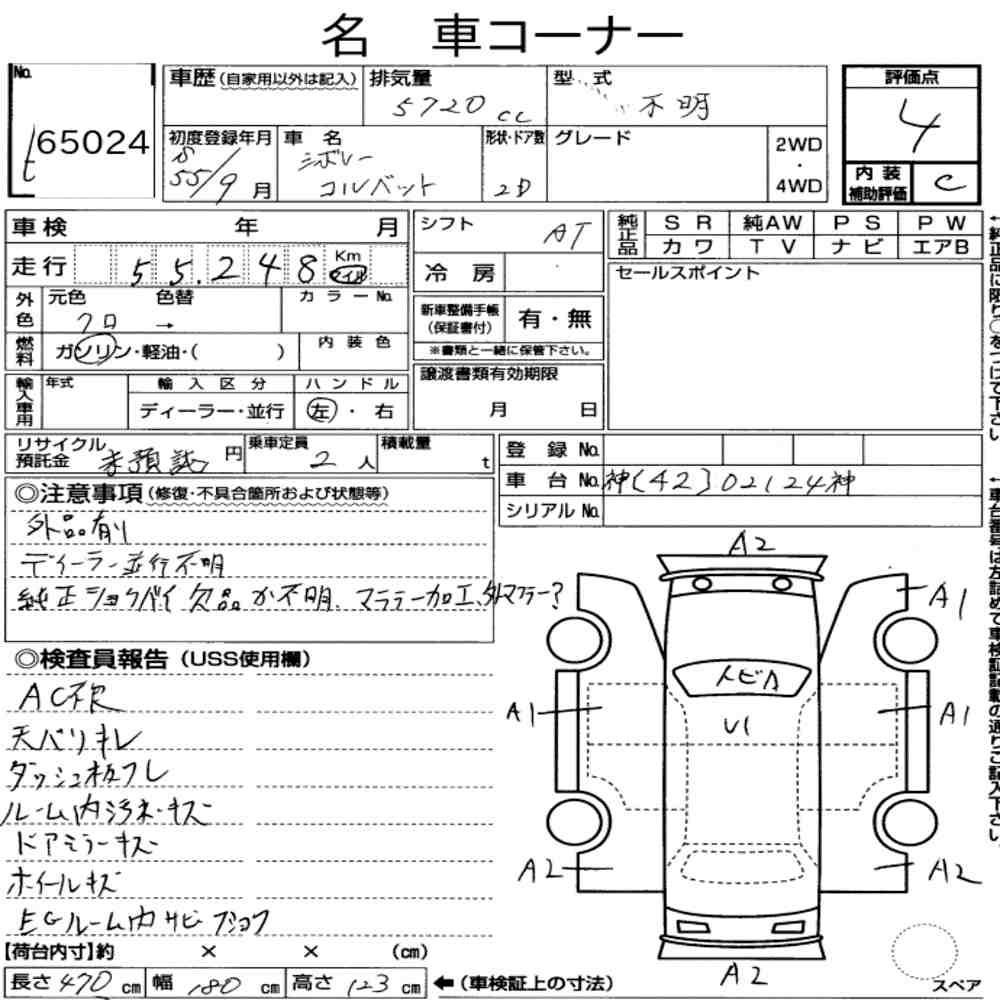 名 車コーナー
No.
65024
車歴(自家用以外は記入)
排気量
5720 cc
型式
不明
評価点
4
初度登録年月
S55/9月
車名
シボレー
コルベット
形状・ドア数
2D
グレード
2WD
・
4WD
内装
補助評価
C
車検 年 月
走行 55.248
Km
マイル
外色
元色 色替 カラーNo.
クロ →
燃料
ガソリン・軽油・( )
内装色
輸入車用
年式
輸入区分
ディーラー・並行
ハンドル
左・右
シフト
AT
冷房
新車整備手帳
(保証書付)
有・無
※書類と一緒に保管下さい。
譲渡書類有効期限
月 日
純正品
SR 純AW PS PW
カワ TV ナビ エアB
セールスポイント
←純正品に限り○をつけて下さい
リサイクル
預託金
未預託 円
乗車定員
2人
積載量
t
登録No.
車台No. 神(42)02124神
シリアルNo.
←車台番号は左詰めで車検証記載の通りご記入下さい。
◎注意事項(修復・不具合箇所および状態等)
外品有り
ディーラー並行不明
純正ショックバイ欠品か不明、マフラー加工、外マフラー?
◎検査員報告(USS使用欄)
AC不良
天バリキレ
ダッシュ板フレ
ルーム内汚れ・キズ
ドアミラーキズ
ホイールキズ
EGルーム内サビ・フショク
A2
A1
トビA
A1
U1
A1
A2
A2
A2
スペア
【荷台内寸】約 × × (cm)
長さ 470 cm 幅 180 cm 高さ 123 cm ←(車検証上の寸法)